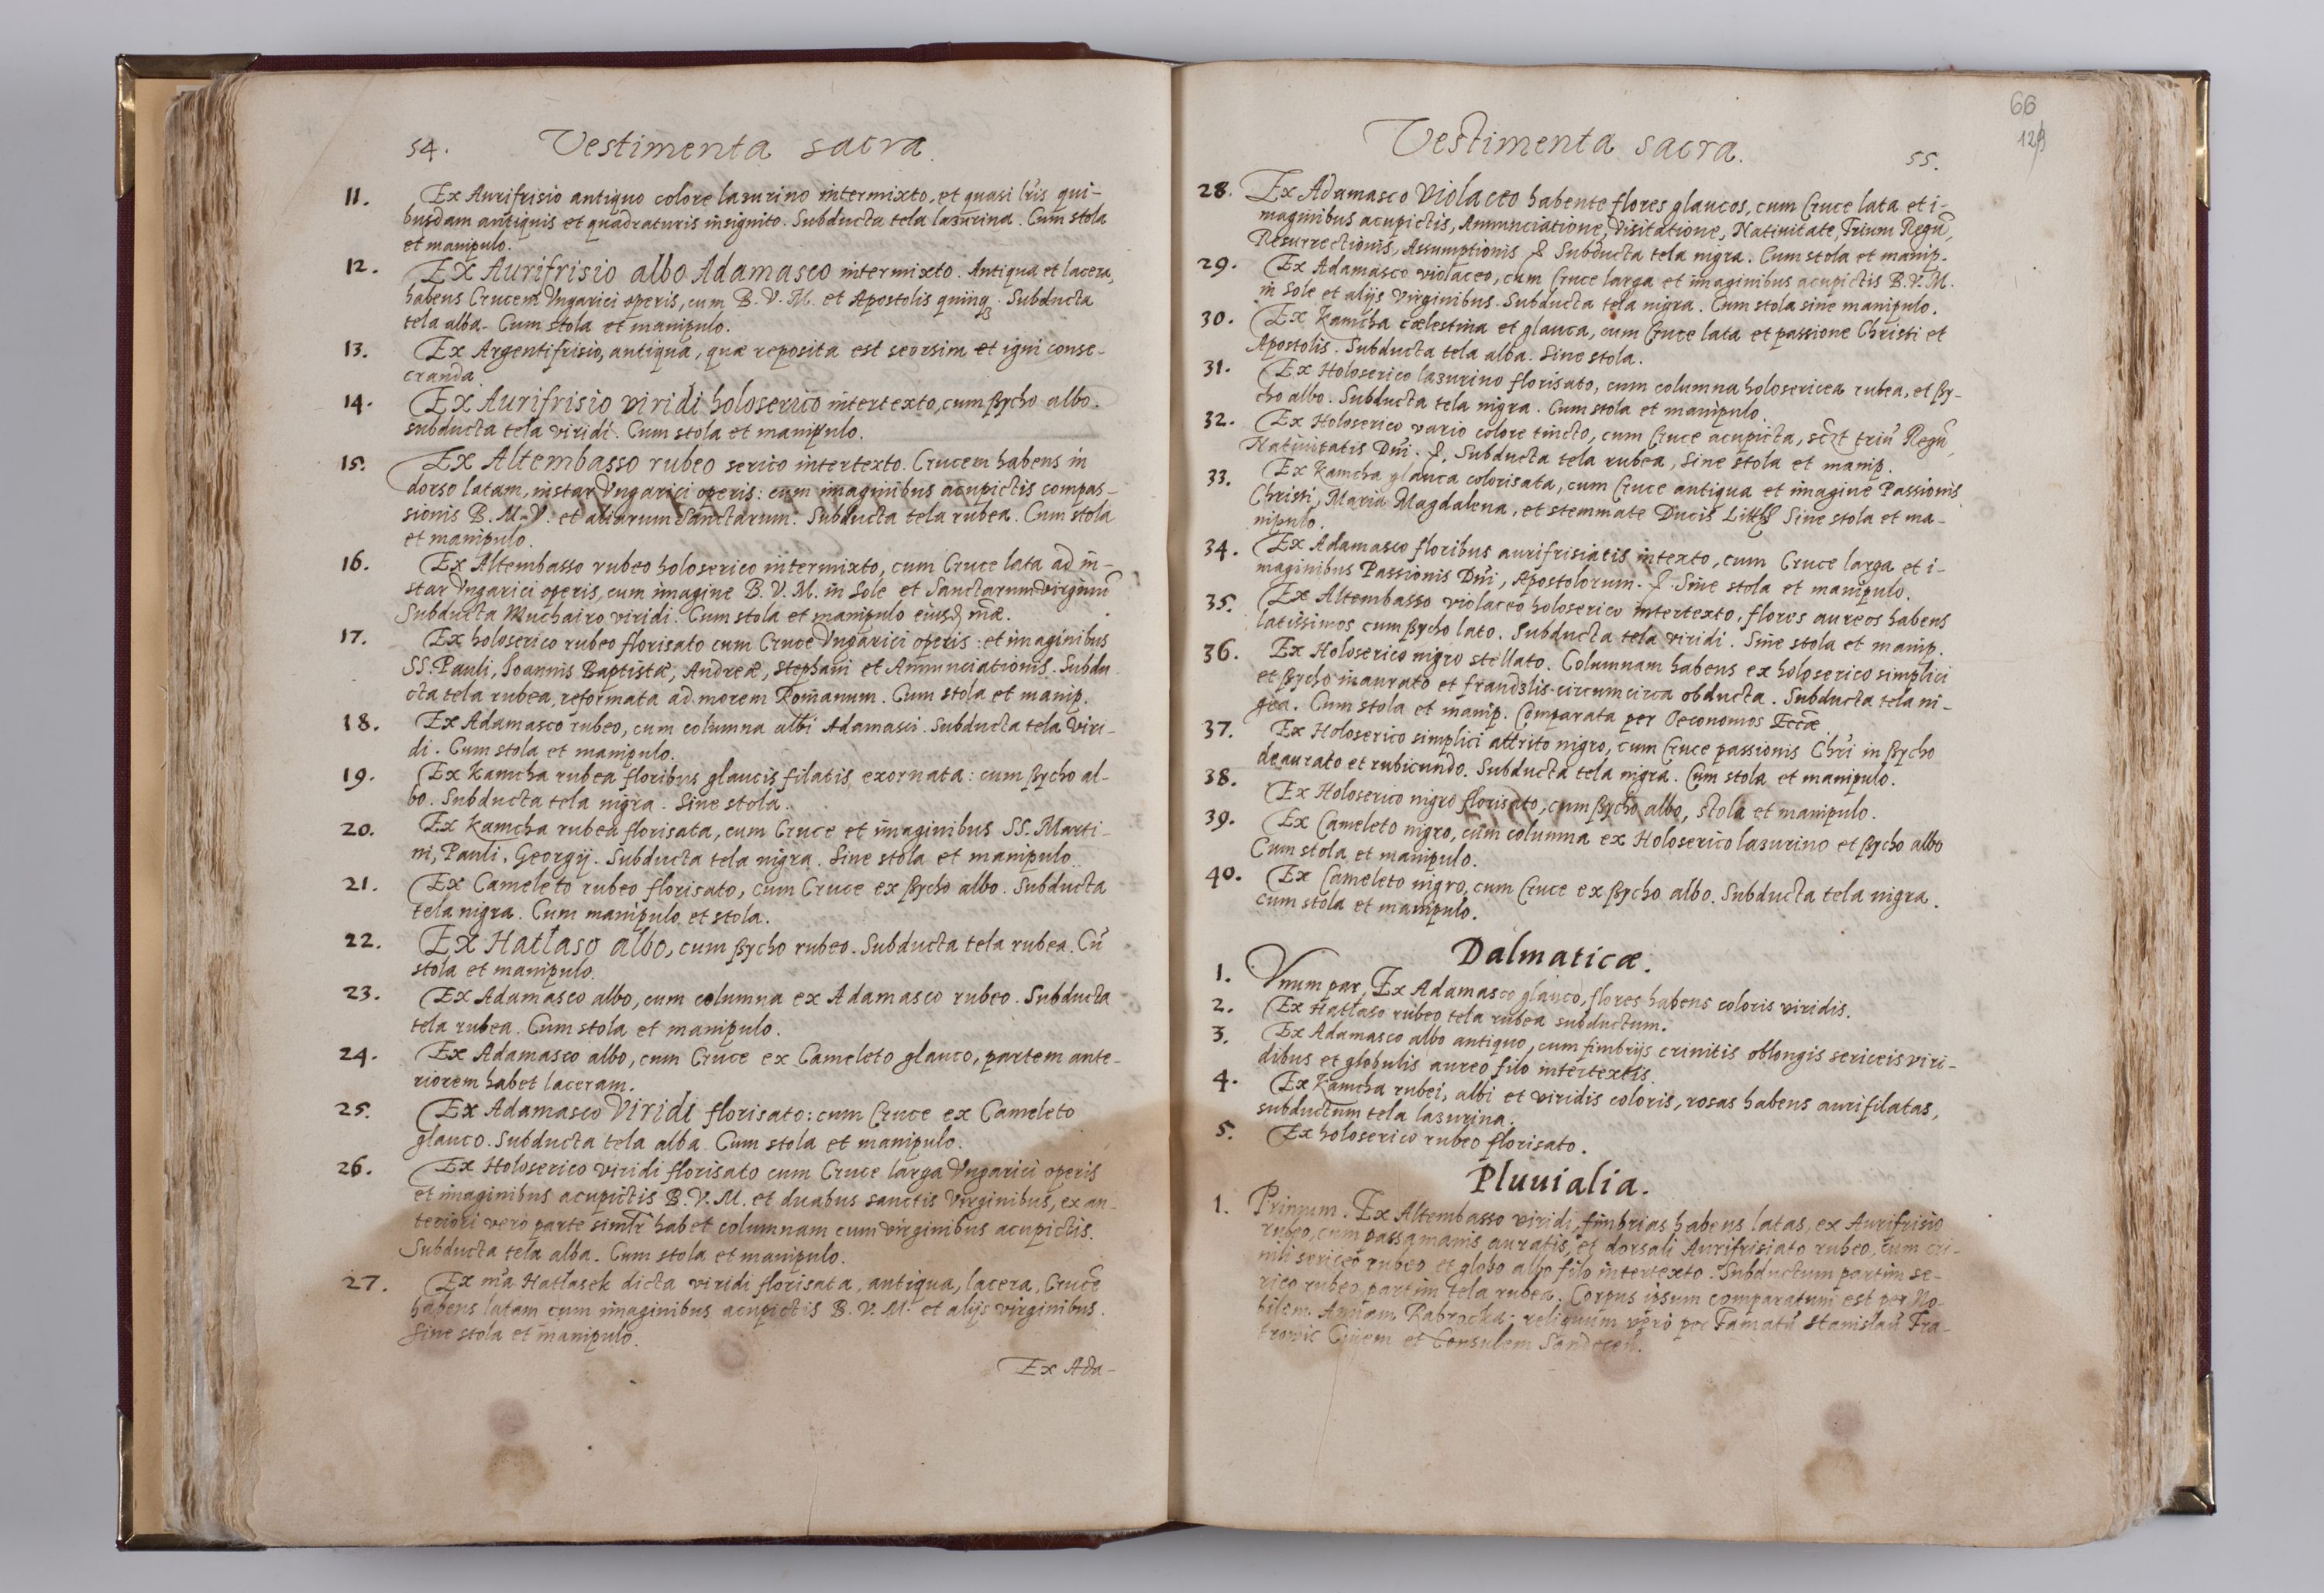 54. Vestimenta sacra.
11. Ex Aurifrisio antiquo colore lazurino intermixto, et quasi lr̃is qui-
busdam antiquis et quadraturis insignito. Subducta tela lazurina. Cum stola
et manipulo.
12. Ex Aurifrisio albo Adamasco intermixto. Antiqua et lacera,
habens Crucem Vngarici operis, cum B. V. M. et Apostolis quinq3. Subducta
tela alba. Cum stola et manipulo.
13. Ex Argentifrisio, antiqua, quæ reposita est seorsim et igni conse-
cranda.
14. Ex Aurifrisio viridi holoserico intertexto, cum ßycho albo.
subducta tela viridi. Cum stola et manipulo.
15. Ex Altembasso rubeo serico intertexto. Crucem habens in
dorso latam, instar Vngarici operis: cum imaginibus acupictis compas-
sionis B. M. V. et aliarum Sanctarum. Subducta tela rubea. Cum stola
et manipulo.
16. Ex Altembasso rubeo holoserico intermixto, cum Cruce lata ad in-
star Vngarici operis, cum imagine B. V. M. in Sole et Sanctarum virginũ
Subducta Muchairo viridi. Cum stola et manipulo eiusd. mãe.
17. Ex holoserico rubeo florisato cum Cruce Vngarici operis: et imaginibus
SS. Pauli, Ioannis Baptistæ, Andreæ, Stephani et Annunciationis. Subdu
cta tela rubea, reformata ad morem Romanum. Cum stola et manip.
18. Ex Adamasco rubeo, cum columna albi Adamasci. Subducta tela viri-
di. Cum stola et manipulo.
19. Ex Kamcha rubea floribus glaucis filatis exornata: cum ßycho al-
bo. Subducta tela nigra. Sine stola.
20. Ex Kamcha rubea florisata, cum Cruce et imaginibus SS. Marti-
ni, Pauli, Georgij. Subducta tela nigra. Sine stola et manipulo.
21. Ex Cameleto rubeo florisato, cum Cruce ex ßycho albo. Subducta
tela nigra. Cum manipulo et stola.
22. Ex Hatłaso albo, cum ßycho rubeo. Subducta tela rubea. Cũ
stola et manipulo.
23. Ex Adamasco albo, cum columna ex Adamasco rubeo. Subducta
tela rubea. Cum stola et manipulo.
24. Ex Adamasco albo, cum Cruce ex Cameleto glauco, partem ante-
riorem habet laceram.
25. Ex Adamasco Viridi florisato: cum Cruce ex Cameleto
glauco. Subducta tela alba. Cum stola et manipulo.
26. Ex Holoserico viridi florisato cum Cruce larga Vngarici operis
et imaginibus acupictis B. V. M. et duabus sanctis Virginibus, ex an-
teriori vero parte simlr̃ habet columnam cum virginibus acupictis.
Subducta tela alba. Cum stola et manipulo.
27. Ex mã Hatłasek dicta viridi florisata, antiqua, lacera, Crucẽ
habens latam cum imaginibus acupictis B. V. M. et alijs virginibus.
Sine stola et manipulo.
Ex Ada-
66
129
Vestimenta sacra. 55.
28. Ex Adamasco Violaceo habente flores glaucos, cum Cruce lata et i-
maginibus acupictis, Annunciatione, Visitatione, Natiuitate, Trium Regũ,
Resurrectionis, Assumptionis &. Subducta tela nigra. Cum stola et manip.
29. Ex Adamasco violaceo, cum Cruce larga et imaginibus acupictis B. V. M.
in Sole et alijs Virginibus. Subducta tela nigra. Cum stola sine manipulo.
30. Ex Kamcha cælestina et glauca, cum Cruce lata et passione Christi et
Apostolis. Subducta tela alba. Sine stola.
31. Ex Holoserico lazurino florisato, cum columna holosericea rubea, et ßy-
cho albo. Subducta tela nigra. Cum stola et manipulo.
32. Ex Holoserico vario colore tincto, cum Cruce acupicta, sc̃zt triũ Regũ,
Natiuitatis Dñi. &. Subducta tela rubea, Sine stola et manip.
33. Ex Kamcha glauca colorisata, cum Cruce antiqua et imagine Passionis
Christi, Maria Magdalena, et stemmate Ducis Sine stola et ma-
nipulo.
34. Ex Adamasco floribus aurifrisiatis intexto, cum Cruce larga et i-
maginibus Passionis Dñi, Apostolorum. &. Sine stola et manipulo.
35. Ex Altembasso violaceo holoserico intertexto, flores aureos habens
latissimos cum ßycho lato. Subducta tela viridi. Sine stola et manip.
36. Ex Holoserico nigro stellato. Columnam habens ex holoserico simplici
et ßycho inaurato et frandzlis circumcirca obducta. Subducta tela ni-
gra. Cum stola et manip. Comparata per Oeconomos Eccãe
37. Ex Holoserico simplici attrito nigro, cum Cruce passionis Chr̃i in ßycho
deaurato et rubicundo. Subducta tela nigra. Cum stola et manipulo.
38. Ex Holoserico nigro florisato, cum ßycho albo, stola et manipulo.
39. Ex Cameleto nigro, cum columna ex Holoserico lazurino et ßycho albo
Cum stola et manipulo.
40. Ex Cameleto nigro, cum Cruce ex ßycho albo. Subducta tela nigra.
cum stola et manipulo.
Dalmaticæ.
1. Vnum par, Ex Adamasco glauco, flores habens coloris viridis.
2. Ex Hatłaso rubeo tela rubea subductum.
3. Ex Adamasco albo antiquo, cum fimbrijs crinitis oblongis sericeis viri-
dibus et globulis aureo filo intertextis.
4. Ex Kamcha rubei, albi et viridis coloris, rosas habens aurifilatas,
subductum tela lazurina.
5. Ex holoserico rubeo florisato.
Pluuialia.
1. Primum. Ex Altembasso viridi, fimbrias habens latas, ex Aurifrisio
rubeo, cum passamanis auratis, et dorsali Aurifrisiato rubeo, cum cri-
nili sericeo rubeo et globo albo filo intertexto. Subductum partim se-
rico rubeo, partim tela rubea. Corpus ipsum comparatum est per No-
bilem Annam reliquum vero per Famatũ Stanislaũ Fra-
Ciuem et Consulem Sandecen̄.